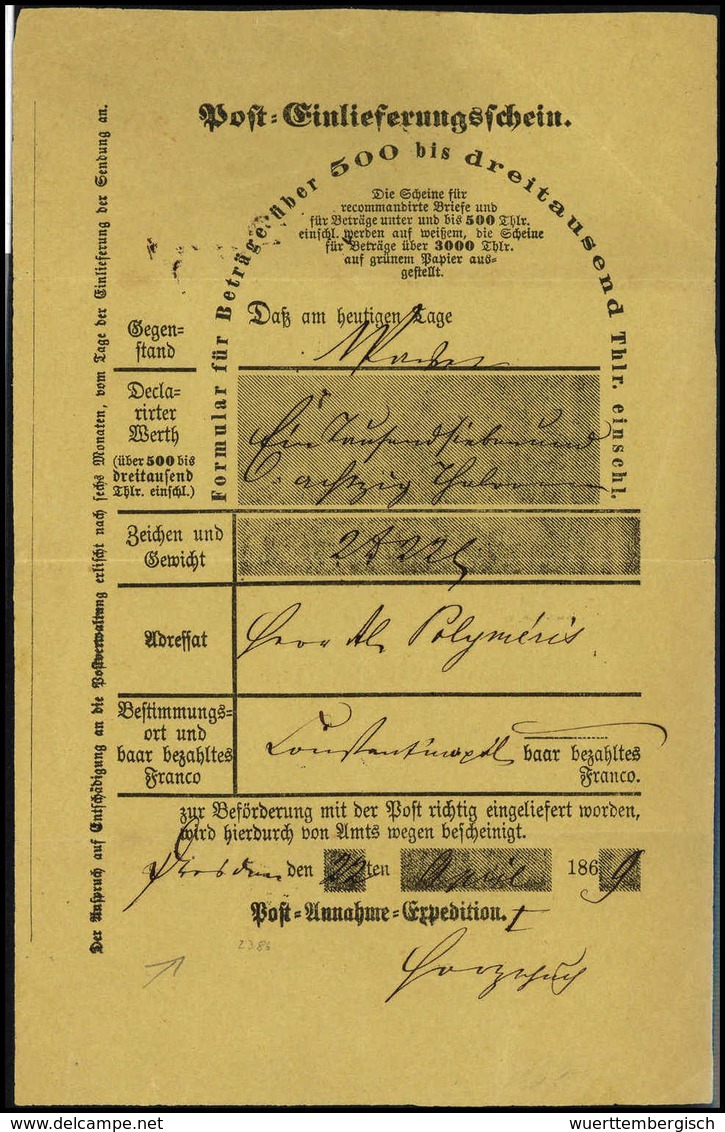 Post-Einlieferungsschein.
Formular für Beträge über 500 bis dreitausend Thlr. einschl.
Die Scheine für
recommandirte Briefe und
für Beträge unter und bis 500 Thlr.
einschl. werden auf weißem, die Scheine
für Beträge über 3000 Thlr.
auf grünem Papier aus-
gestellt.
Daß am heutigen Tage
Gegen-
stand
Decla-
rirter
Werth
(über 500 bis
dreitausend
Thlr. einschl.)
Ein Tausend sieben und
achtzig
Zeichen und
Gewicht
Adressat
Herr Al. Polyméris
Bestimmungs-
ort und
baar bezahltes
Franco
Constantinopel baar bezahltes
Franco.
zur Beförderung mit der Post richtig eingeliefert worden,
wird hierdurch von Amts wegen bescheinigt.
Dresden den 22ten April 1869
Post-Annahme-Expedition. I
2386
Der Anspruch auf Entschädigung an die Postverwaltung erlischt nach sechs Monaten, vom Tage der Einlieferung der Sendung an.
delcampe.net
wuerttembergisch